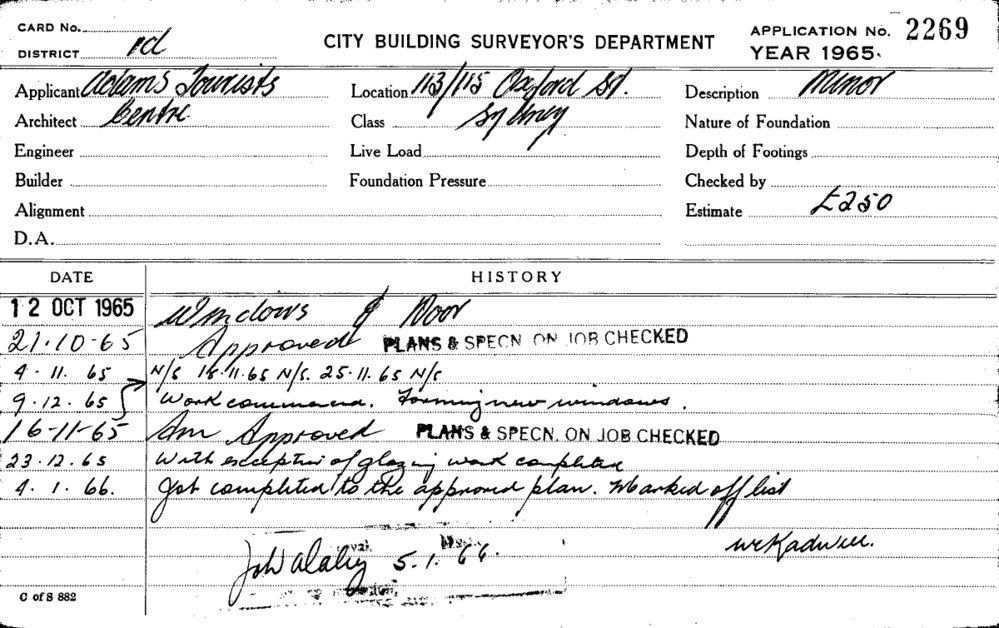 CARD No.
DISTRICT
CITY BUILDING SURVEYOR'S DEPARTMENT
APPLICATION No. 2269
YEAR 1965.
Applicant Adams Tourists
Location 113/115 Oxford St.
Description Minor
Architect Centre
Class Sydney
Nature of Foundation
Engineer
Live Load
Depth of Footings
Builder
Foundation Pressure
Checked by
Alignment
Estimate £250
D.A.
DATE HISTORY
12 OCT 1965 Windows & Door
21.10.65 Approved PLANS & SPECN. ON JOB CHECKED
4.11.65 N/S 18.11.65 N/S. 25.11.65 N/S
9.12.65 Work commenced. Forming new windows.
16-11-65 Am Approved PLANS & SPECN. ON JOB CHECKED
23.12.65 With exception of glazing work completed
4.1.66. Job completed to the approved plan. Marked off list
5.1.66
C of S 882